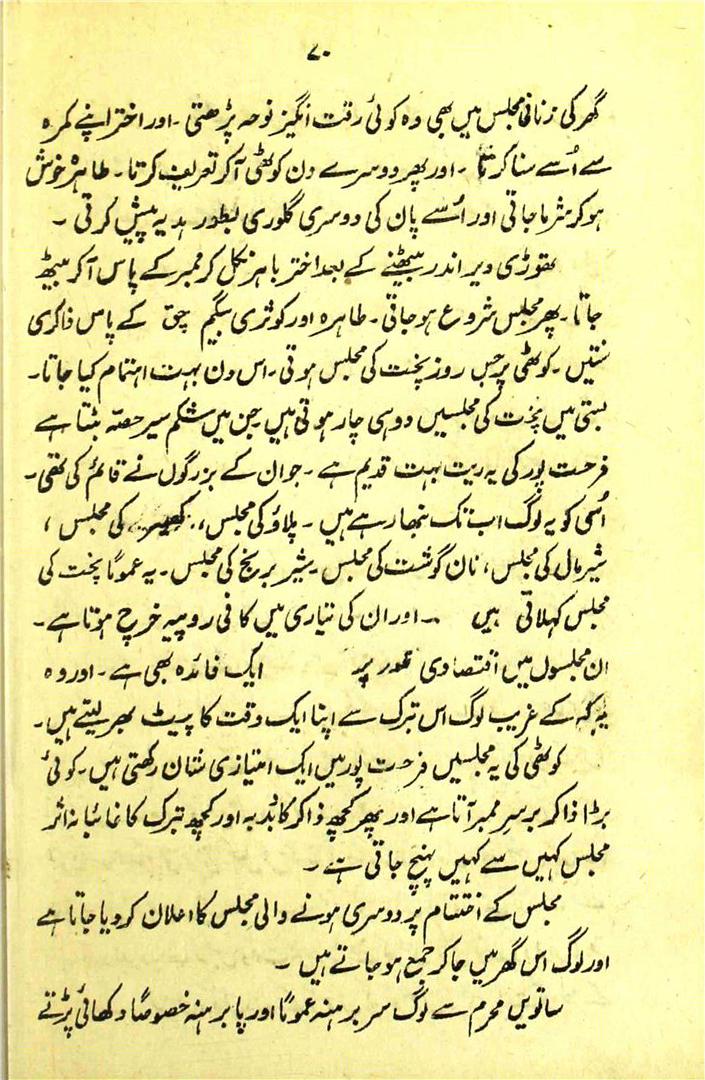 ۷۰
گھر کی زنانی مجلس میں بھی وہ کوئی رقت انگیز نوحہ پڑھتی ۔ اور اختر اپنے کمرہ
سے اُسے سنا کرتا ۔ اور پھر دوسرے دن کوٹھی آکر تعریف کرتا ۔ طاہرہ خوش
ہو کر شرما جاتی اور اُسے پان کی دوسری گلوری بطور ہدیہ پیش کرتی ۔
تھوڑی دیر اندر بیٹھنے کے بعد اختر باہر نکل کر ممبر کے پاس آکر بیٹھ
جاتا ۔ پھر مجلس شروع ہو جاتی ۔ طاہرہ اور کوثری بیگم چق کے پاس ذاکری
سنتیں ۔ کوٹھی پر جس روز پخت کی مجلس ہوتی ۔ اس دن بہت اہتمام کیا جاتا ۔
بستی میں پخت کی مجلسیں دو ہی چار ہوتی ہیں جن میں شکم سیر حصہ بٹتا ہے
فرحت پور کی یہ ریت بہت قدیم ہے ۔ جو ان کے بزرگوں نے قائم کی تھی ۔
اُسی کو یہ لوگ اب تک نبھا رہے ہیں ۔ پلاؤ کی مجلس ، کی مجلس ،
شیرمال کی مجلس ، نان گوشت کی مجلس شیر برنج کی مجلس ۔ یہ عموماً پخت کی
مجلس کہلاتی ہیں ۔ اور ان کی تیاری میں کافی روپیہ خرچ ہوتا ہے ۔
ان مجلسوں میں اقتصادی طور پر ایک فائدہ بھی ہے ۔ اور وہ
یہ کہ کے غریب لوگ اس تبرک سے اپنا ایک وقت کا پیٹ بھر لیتے ہیں ۔
کوٹھی کی یہ مجلسیں فرحت پور میں ایک امتیازی شان رکھتی ہیں ۔ کوئی
بڑا ذاکر بر سرِ ممبر آتا ہے اور پھر کچھ ذاکر کا بُدبہ اور کچھ تبرک کا غائبانہ اثر
مجلس کہیں سے کہیں پہنچ جاتی ہے ۔
مجلس کے اختتام پر دوسری ہونے والی مجلس کا اعلان کر دیا جاتا ہے
اور لوگ اس گھر میں جا کر جمع ہو جاتے ہیں ۔
ساتویں محرم سے لوگ سر برہنہ عموماً اور پا برہنہ خصوصاً دکھائی پڑتے